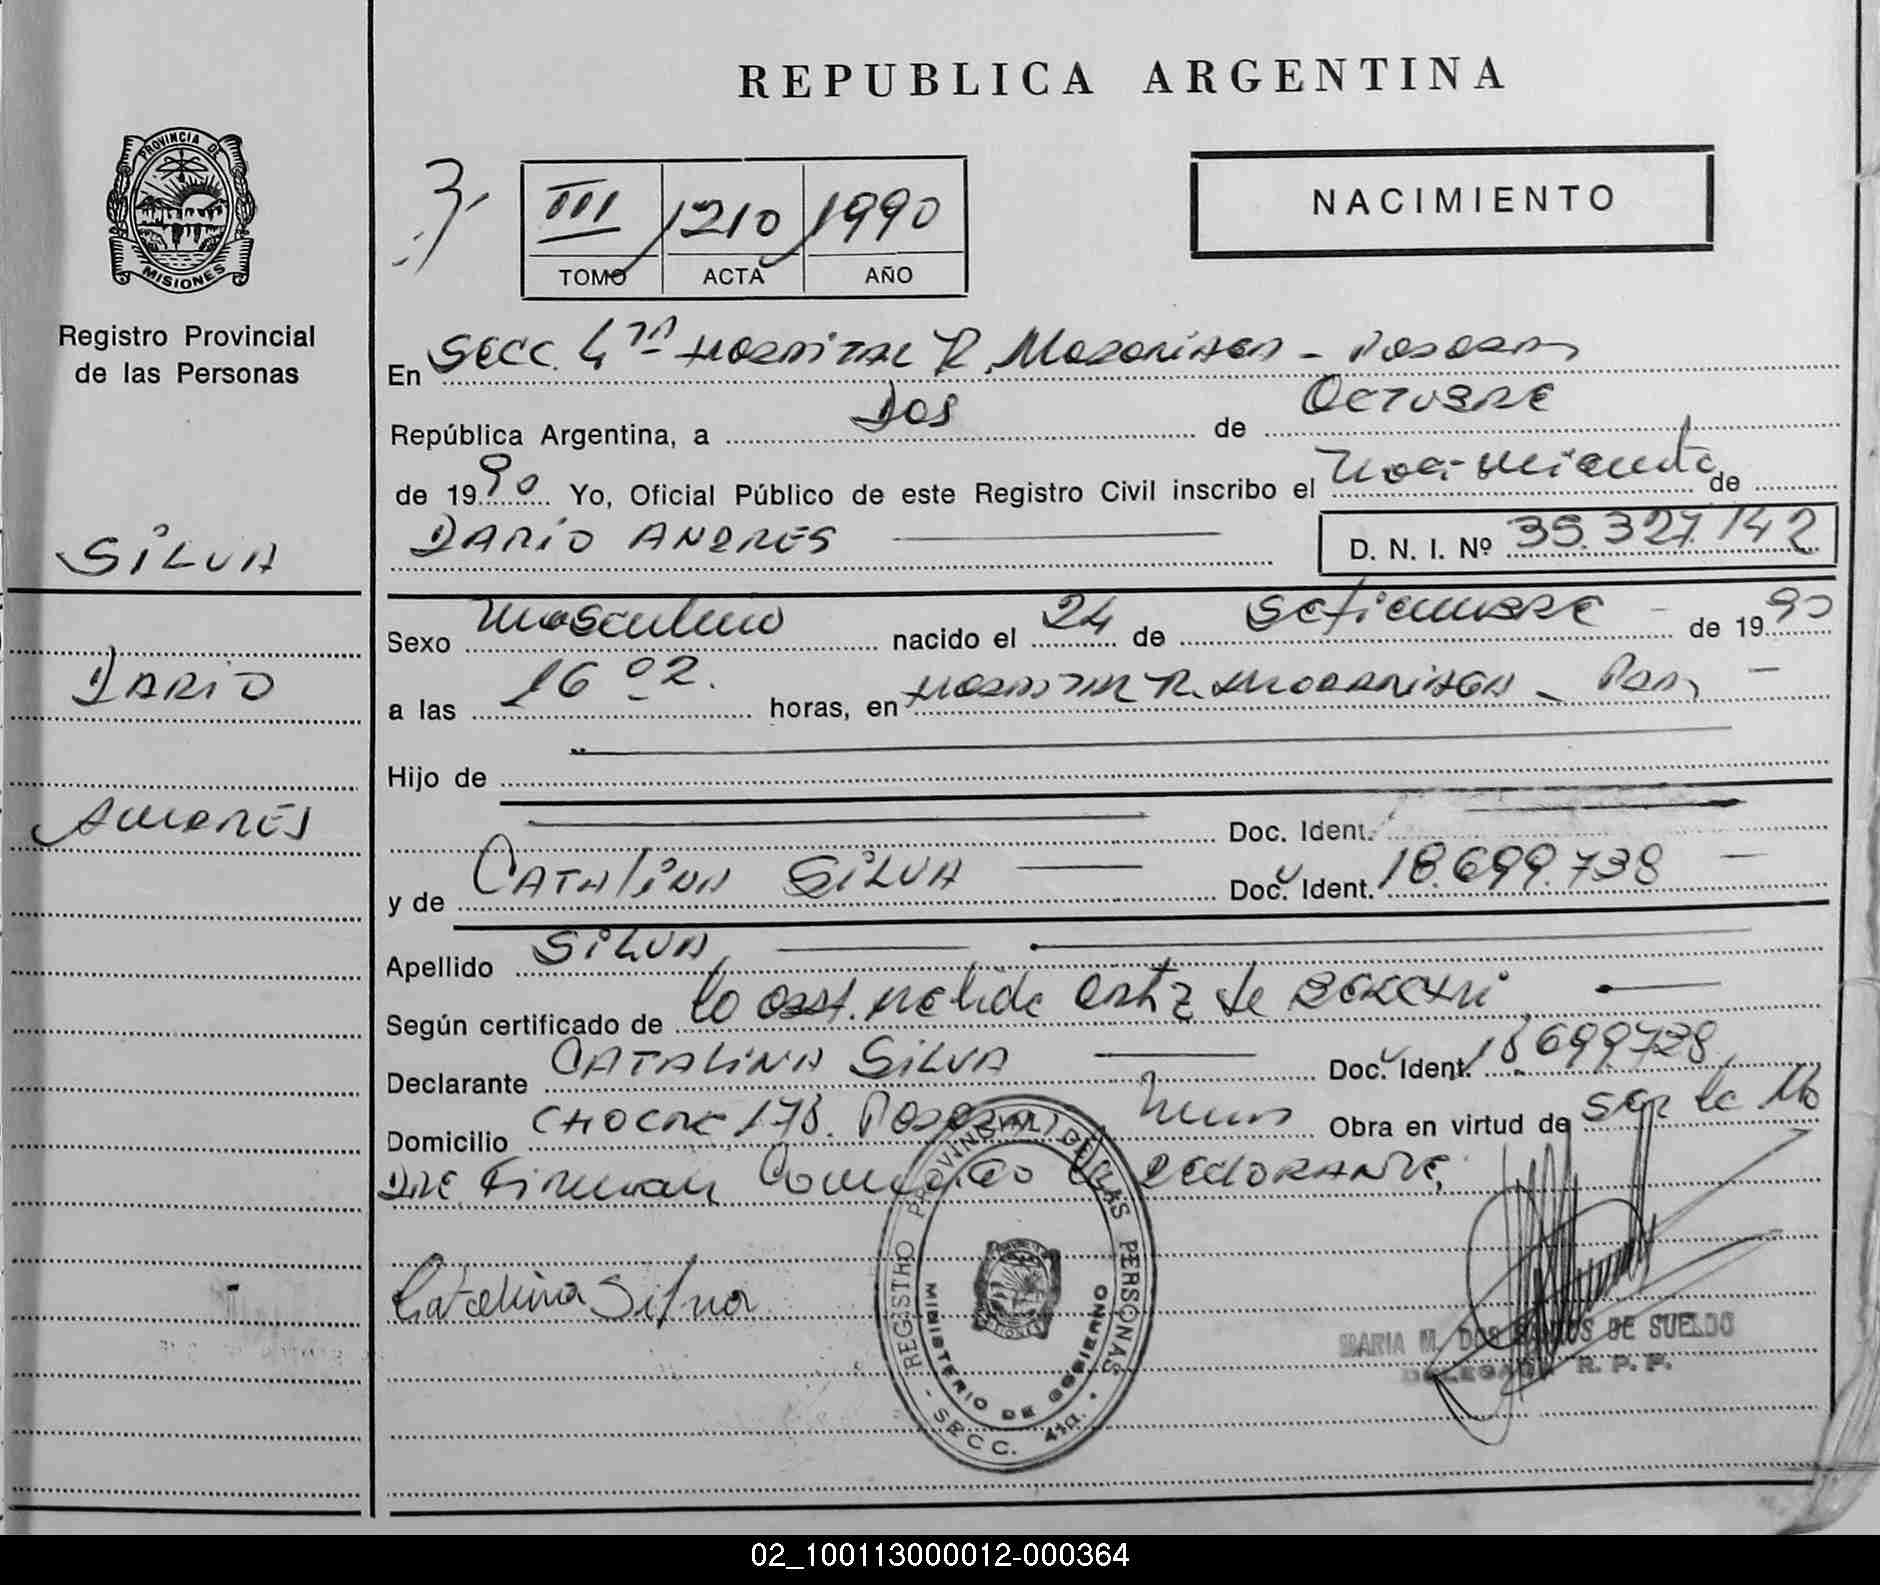 REPUBLICA ARGENTINA
PROVINCIA DE
MISIONES
Registro Provincial
de las Personas
III 1210 1990
TOMO ACTA AÑO
NACIMIENTO
En SECC. 4ta HOSPITAL R. - Posadas
República Argentina, a Dos de OCTUBRE
de 1990 Yo, Oficial Público de este Registro Civil inscribo el Nacimiento de
DARIO ANDRES D. N. I. Nº 35.327.142
SILVA
DARIO
ANDRES
Sexo Masculino nacido el 24 de SETIEMBRE de 1990
a las 16 02. horas, en HOSPITAL R. - Pdas -
Hijo de
Doc. Ident.
y de CATALINA SILVA Doc. Ident. 18.699.738
Apellido SILVA
Según certificado de la Obst. Nelida Ortiz de
Declarante CATALINA SILVA Doc. Ident. 18.699.738
Domicilio 178. Posadas Obra en virtud de ser la Ma
DRE Firman la DECLORANTE,
Catalina Silva
REGISTRO PROVINCIAL DE LAS PERSONAS
MINISTERIO DE GOBIERNO
- SECC. 4ta. -
MARIA M. DOS SANTOS DE SUELDO
DELEGADA R. P. P.
02_100113000012-000364